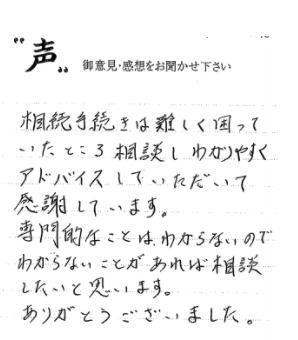 "声"
御意見・感想をお聞かせ下さい
相続手続きは難しく困って
いたところ相談しわかりやすく
アドバイスしていただいて
感謝しています。
専門的なことは、わからないので
わからないことがあれば相談
したいと思います。
ありがとうございました。